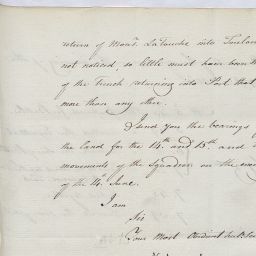 return of Monsr. LaTouche into Toulon
not noticed, so little must have been th
of the French returning into Port that
more than any other.
I send you the bearings
the land for the 14th and 15th and
movements of the Squadron on the
of the 14 June.
I am
Sir
Your Most Obedient